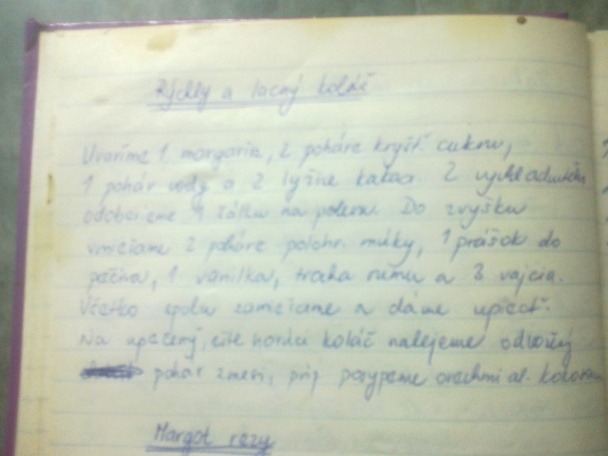 Rýchly a lacný koláč
Uvaríme 1 margarín, 2 poháre kryšt. cukru,
1 pohár vody a 2 lyžice kakaa. Z
odoberieme 1 šálku na polevu. Do zvyšku
vmiešam 2 poháre polohr. múky, 1 prášok do
pečiva, 1 vanilka, troška rumu a 3 vajcia.
Všetko spolu zamiešame a dáme upiecť.
Na upečený, ešte horúci koláč nalejeme odložený
pohár zmesi, príp. posypeme orechmi al.
Margot rezy